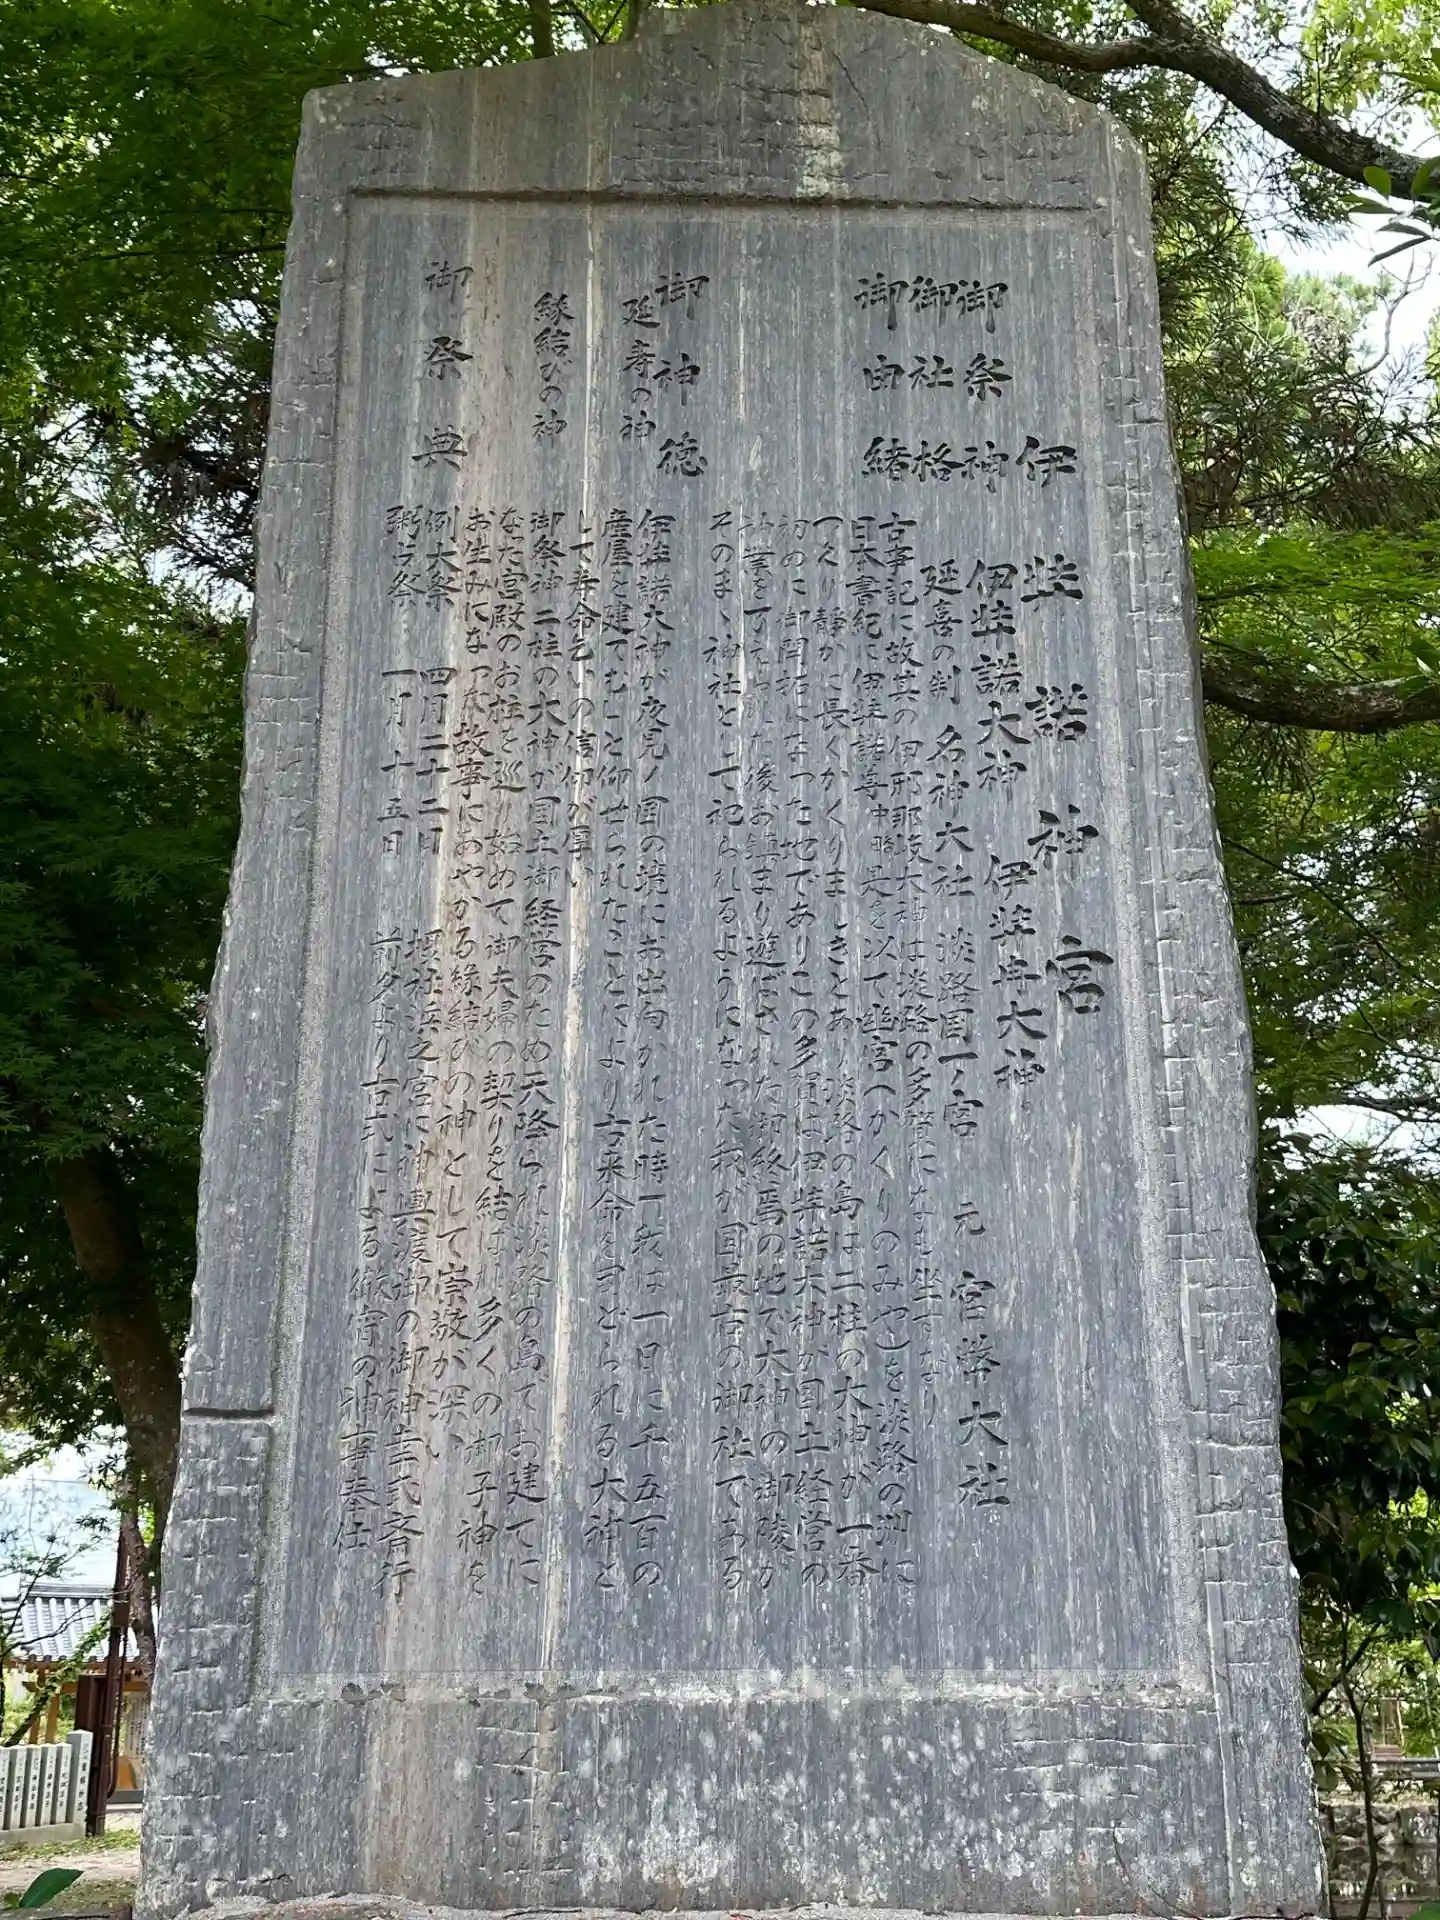 伊弉諾神宮
御祭神 伊弉諾大神 伊弉冉大神
御社格 延喜の制 名神大社 淡路国一ノ宮 元 官幣大社
御由緒 古事記に故其の伊邪那岐大神は淡路の多賀になも坐すなり
日本書紀に伊弉諾尊 是を以て幽宮(かくりのみや)を淡路の洲に
つくり静かに長くかくりましきとあり淡路の島は二柱の大神が一番
初めに御開拓になった地でありこの多賀は伊弉諾大神が国土経営の
神業を了えられた後お鎮まり遊ばされた御終焉の地で大神の御陵が
そのまゝ神社として祀られるようになった我が国最古の御社である
御神徳
延寿の神 伊弉諾大神が夜見ノ国の境にお出向かれた時「我は一日に千五百の
産屋を建てむ」と仰せられたことにより古来命を司どられる大神と
して寿命乞いの信仰が厚い
縁結びの神 御祭神二柱の大神が国土御経営のため天降られ淡路の島でお建てに
なった宮殿のお柱を巡り始めて御夫婦の契りを結ばれ多くの御子神を
お生みになった故事にあやかる縁結びの神として崇敬が深い
御祭典 例大祭 四月二十二日 摂社浜之宮に神輿渡御の御神幸式斎行
粥占祭 一月十五日 前夕より古式による徹宵の神事奉仕